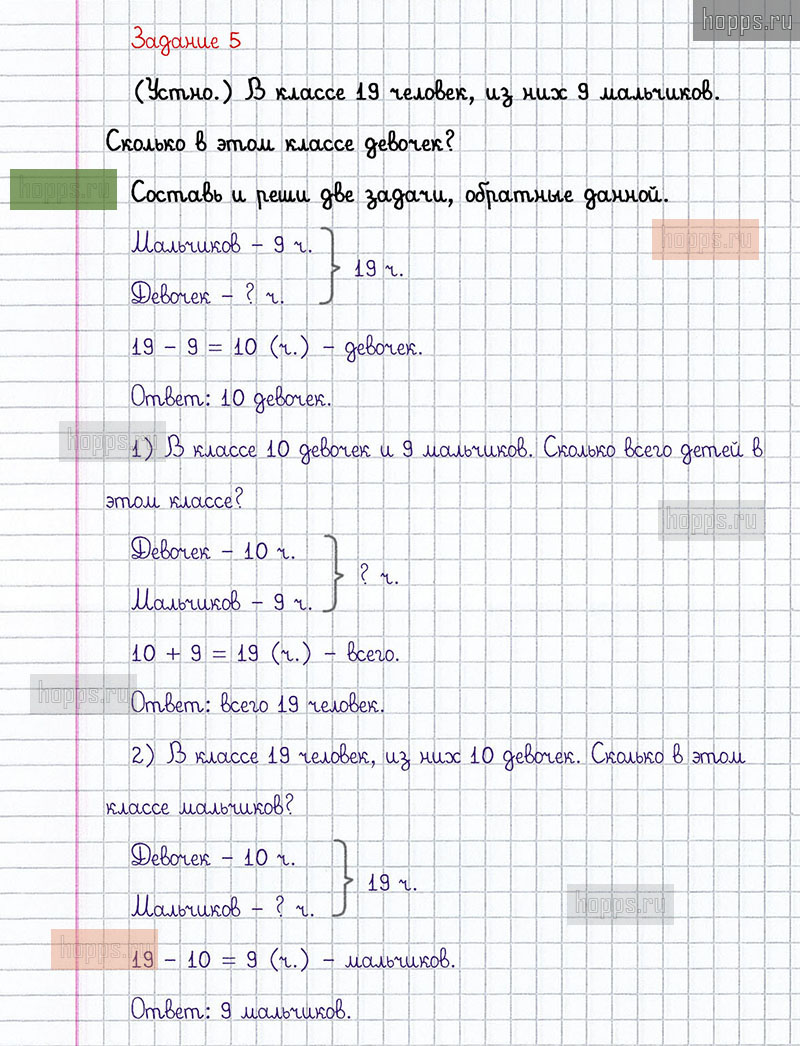 hopps.ru
Задание 5
(Устно.) В классе 19 человек, из них 9 мальчиков.
Сколько в этом классе девочек?
hopps.ru
Составь и реши две задачи, обратные данной.
hopps.ru
Мальчиков – 9 ч.
19 ч.
Девочек – ? ч.
19 – 9 = 10 (ч.) – девочек.
Ответ: 10 девочек.
hopps.ru
1) В классе 10 девочек и 9 мальчиков. Сколько всего детей в
этом классе?
hopps.ru
Девочек – 10 ч.
? ч.
Мальчиков – 9 ч.
10 + 9 = 19 (ч.) – всего.
hopps.ru
Ответ: всего 19 человек.
2) В классе 19 человек, из них 10 девочек. Сколько в этом
классе мальчиков?
Девочек – 10 ч.
19 ч.
Мальчиков – ? ч.
hopps.ru
hopps.ru
19 – 10 = 9 (ч.) – мальчиков.
Ответ: 9 мальчиков.